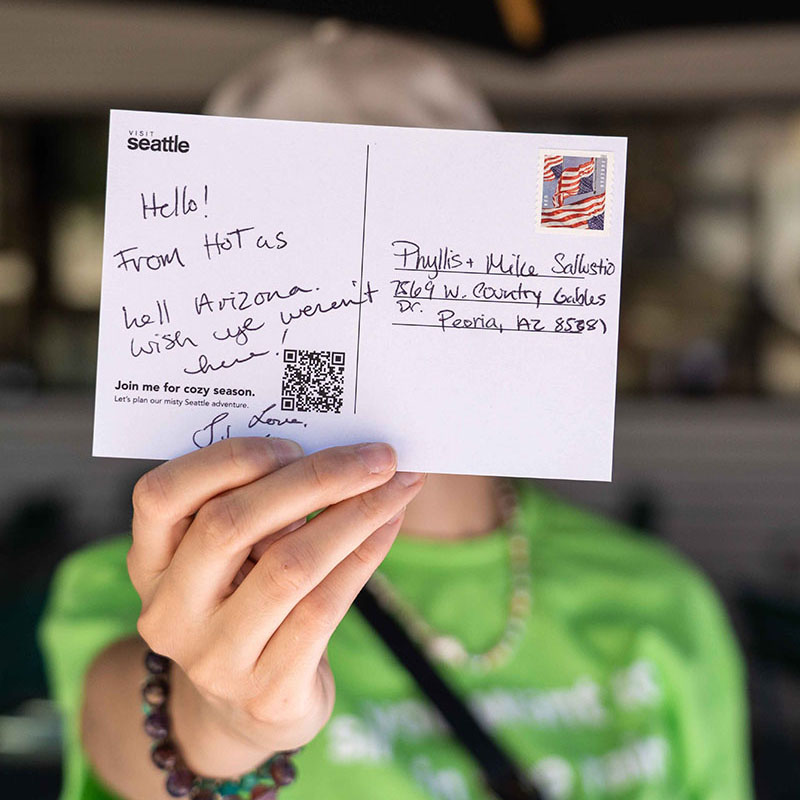 VISIT
seattle
Hello!
From HOT as
hell Arizona.
wish we weren't
here!
Join me for cozy season.
Let's plan our misty Seattle adventure.
Love,
Phyllis + Mike Sallustio
7869 W. Country Gables
Dr.
Peoria, AZ 85381